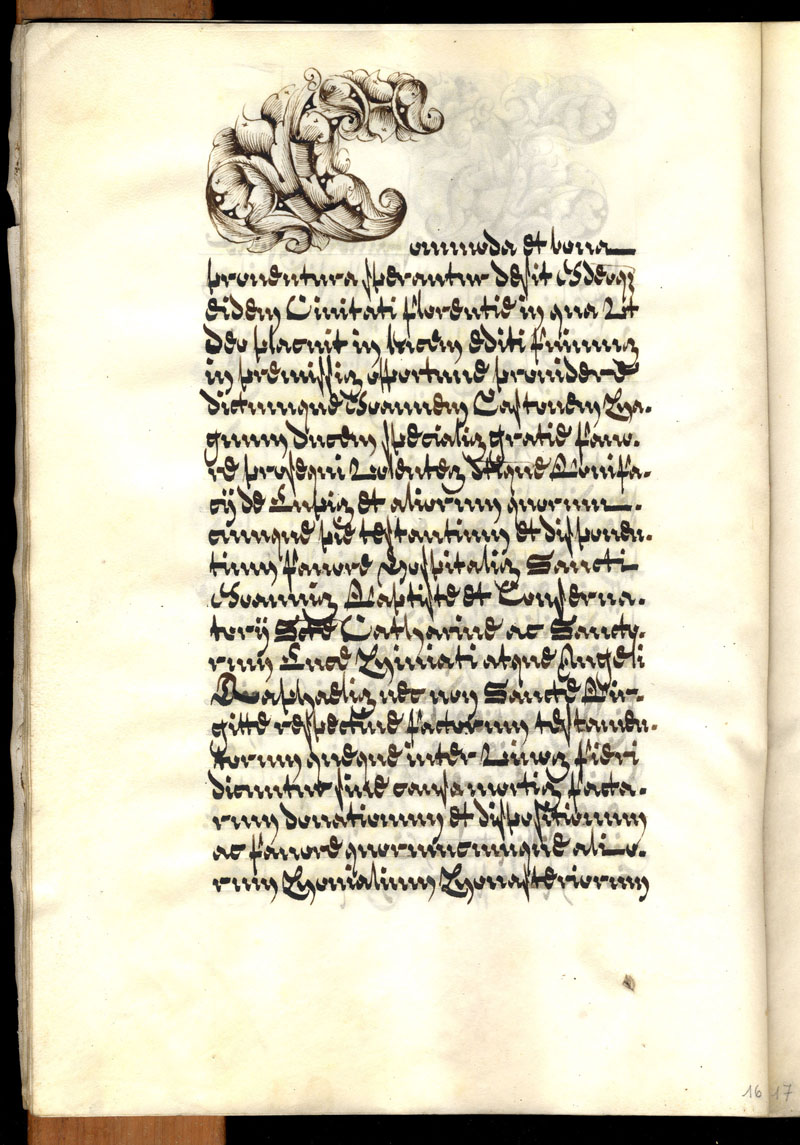 Commoda et bona
prouentura sperantur desit Ideoqz
eidem Ciuitati florentie in qua Ut
deo placuit in lucem editi fuimus
in premissis opportune prouidere
dictumque Ioannem Gastonem Ma-
gnum Ducem specialis gratie fauo-
re prosequi Volentes Bonifa-
cij de Lupis et aliorum quorum-
cumque pie testantium et disponen-
tium fauore Hospitalis Sancti
Ioannis Baptiste et Conserua-
torij Sctē Catharine ac Sancto-
rum Luce Miniati atque Angeli
Raphaelis nec non Sancte Bir-
gitte respectiue factorum testamen-
torum queque inter Viuos fieri
dicuntur siue causa mortis facta-
rum donationum et dispositionum
ac fauore quorumcumque alio-
rum Monialium Monasteriorum
16 17